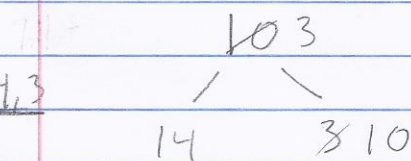 10 3
14 3 10